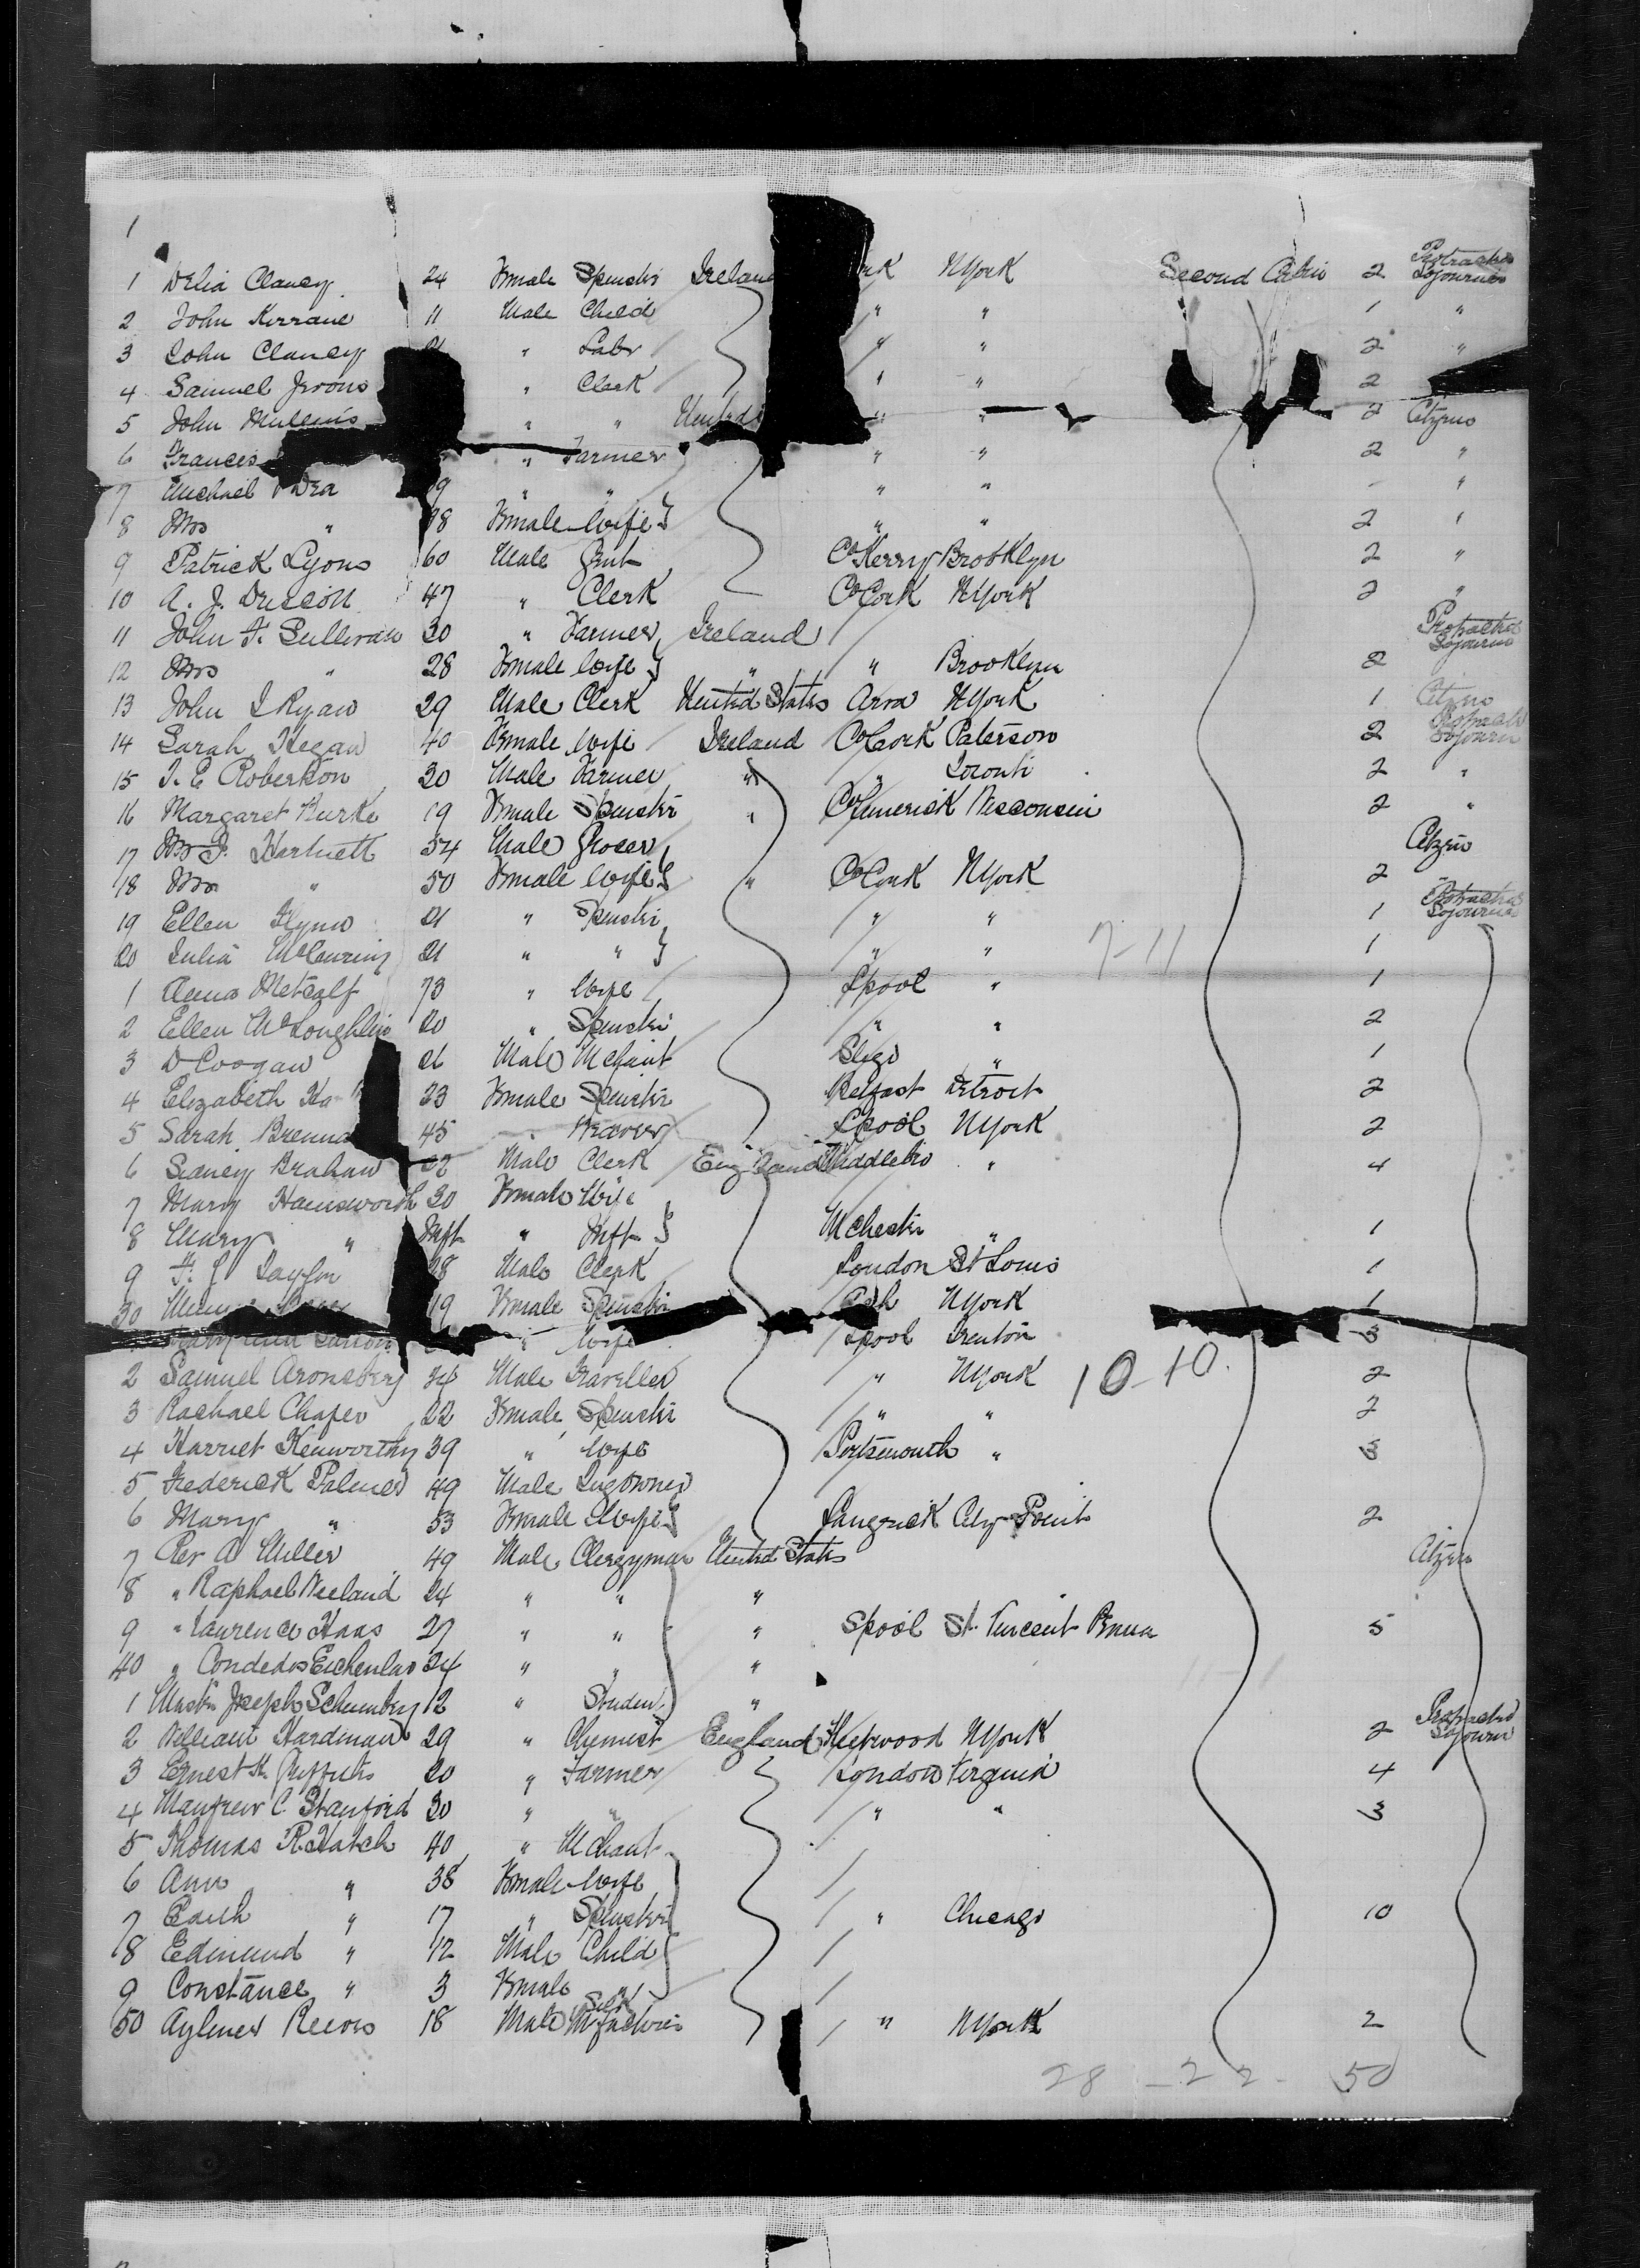 1
1 Delia Clancy 24 Female Spinster Ireland rk NYork Second Cabin 2 Protracted Sojourn
2 John Kerrane 11 Male Child " " 1 "
3 John Clancy 21 " Labr " " 2 "
4 Samuel Irons " Clerk " " 2
5 John Mullens " " United " " 2 Citizens
6 Frances " Farmer " " 2 "
7 Michael O'Dea 9 " " " " - "
8 Mrs " 38 Female Wife " " 2 "
9 Patrick Lyons 60 Male Gent Co Kerry Brooklyn 2 "
10 A. J. Driscoll 47 " Clerk Co Cork NYork 2 "
11 John F. Sullivan 30 " Farmer Ireland Protracted Sojourn
12 Mrs " 28 Female Wife " " Brooklyn 2
13 John I Ryan 29 Male Clerk United States NYork 1 Citizens
14 Sarah Hegan 40 Female Wife Ireland Co Cork Paterson 2 Protracted Sojourn
15 T. E Robertson 30 Male Farmer " " Toronto 2 "
16 Margaret Burke 19 Female Spinster " Co Limerick Wisconsin 2 "
17 Mr P. Hartnett 54 Male Grocer Citizen
18 Mrs " 50 Female Wife " Co Cork NYork 2 "
19 Ellen Flynn 21 " Spinster " " 1 Protracted Sojourn
20 Julia 21 " " " " 1
7-11
1 Anna Metcalf 73 " Wife Lpool " 1
2 Ellen McLoughlin 20 " Spinster " " 2
3 D Coogan 21 Male Mchant Sligo " 1
4 Elizabeth Ha 23 Female Spinster Belfast Detroit 2
5 Sarah Brenna 45 " Weaver Lpool NYork 2
6 Sidney Braham 22 Male Clerk England Middlebro " 4
7 Mary Hainsworth 30 Female Wife
8 Mary " Inft " Inft Mchester " 1
9 F. J Taylor 28 Male Clerk London St Louis 1
30 19 Female Spinster NYork 1
Mary Ann " Wife Lpool Trenton 3
2 Samuel Aronsberg 24 Male Traveller " NYork 2
10-10
3 Rachael Chafer 22 Female Spinster " " 2
4 Harriet Kenworthy 39 " Wife Portsmouth " 3
5 Frederick Palmer 49 Male
6 Mary " 53 Female Wife City Point 2
7 Rev A Miller 49 Male Clergyman United States Citizen
8 " Raphael Wieland 24 " " "
9 " Laurence Haas 27 " " " Lpool St. Vincent Penna 5
40 " 24 " " "
1 Mastr Joseph 12 " Student "
2 William Hardman 29 " Chemist England Fleetwood NYork 2 Protracted Sojourn
3 Ernest H. Griffiths 20 " Farmer London Virginia 4
4 C. Stanford 30 " " " " 3
5 Thomas R. Hatch 40 " Mchant
6 Ann " 38 Female Wife
7 Edith " 17 " Spinster " Chicago 10
8 Edmund " 12 Male Child
9 Constance " 3 Female "
50 Aylmer 18 Male Silk Mfacturer " NYork 2
28 - 22 - 50